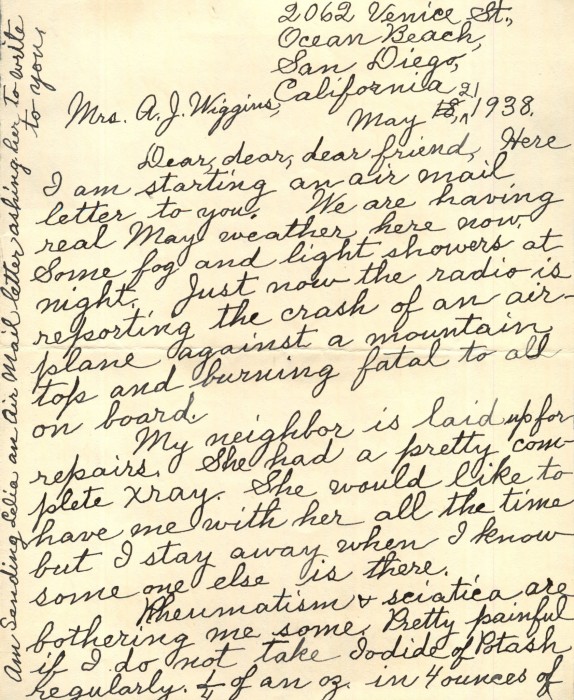 2062 Venice St.,
Ocean Beach,
San Diego,
California
Mrs. A. J. Wiggins,
May 18, 21 1938.
Dear, dear, dear friend, Here
I am starting an air mail
letter to you. We are having
real May weather here now.
Some fog and light showers at
night. Just now the radio is
reporting the crash of an air-
plane against a mountain
top and burning fatal to all
on board.
My neighbor is laid up for
repairs. She had a pretty com-
plete xray. She would like to
have me with her all the time
but I stay away when I know
some one else is there.
Rheumatism & sciatica are
bothering me some. Pretty painful
if I do not take Iodide of Potash
regularly. ¼ of an oz in 4 ounces of
Am Sending Lelia an Air Mail letter asking her to write
to you.